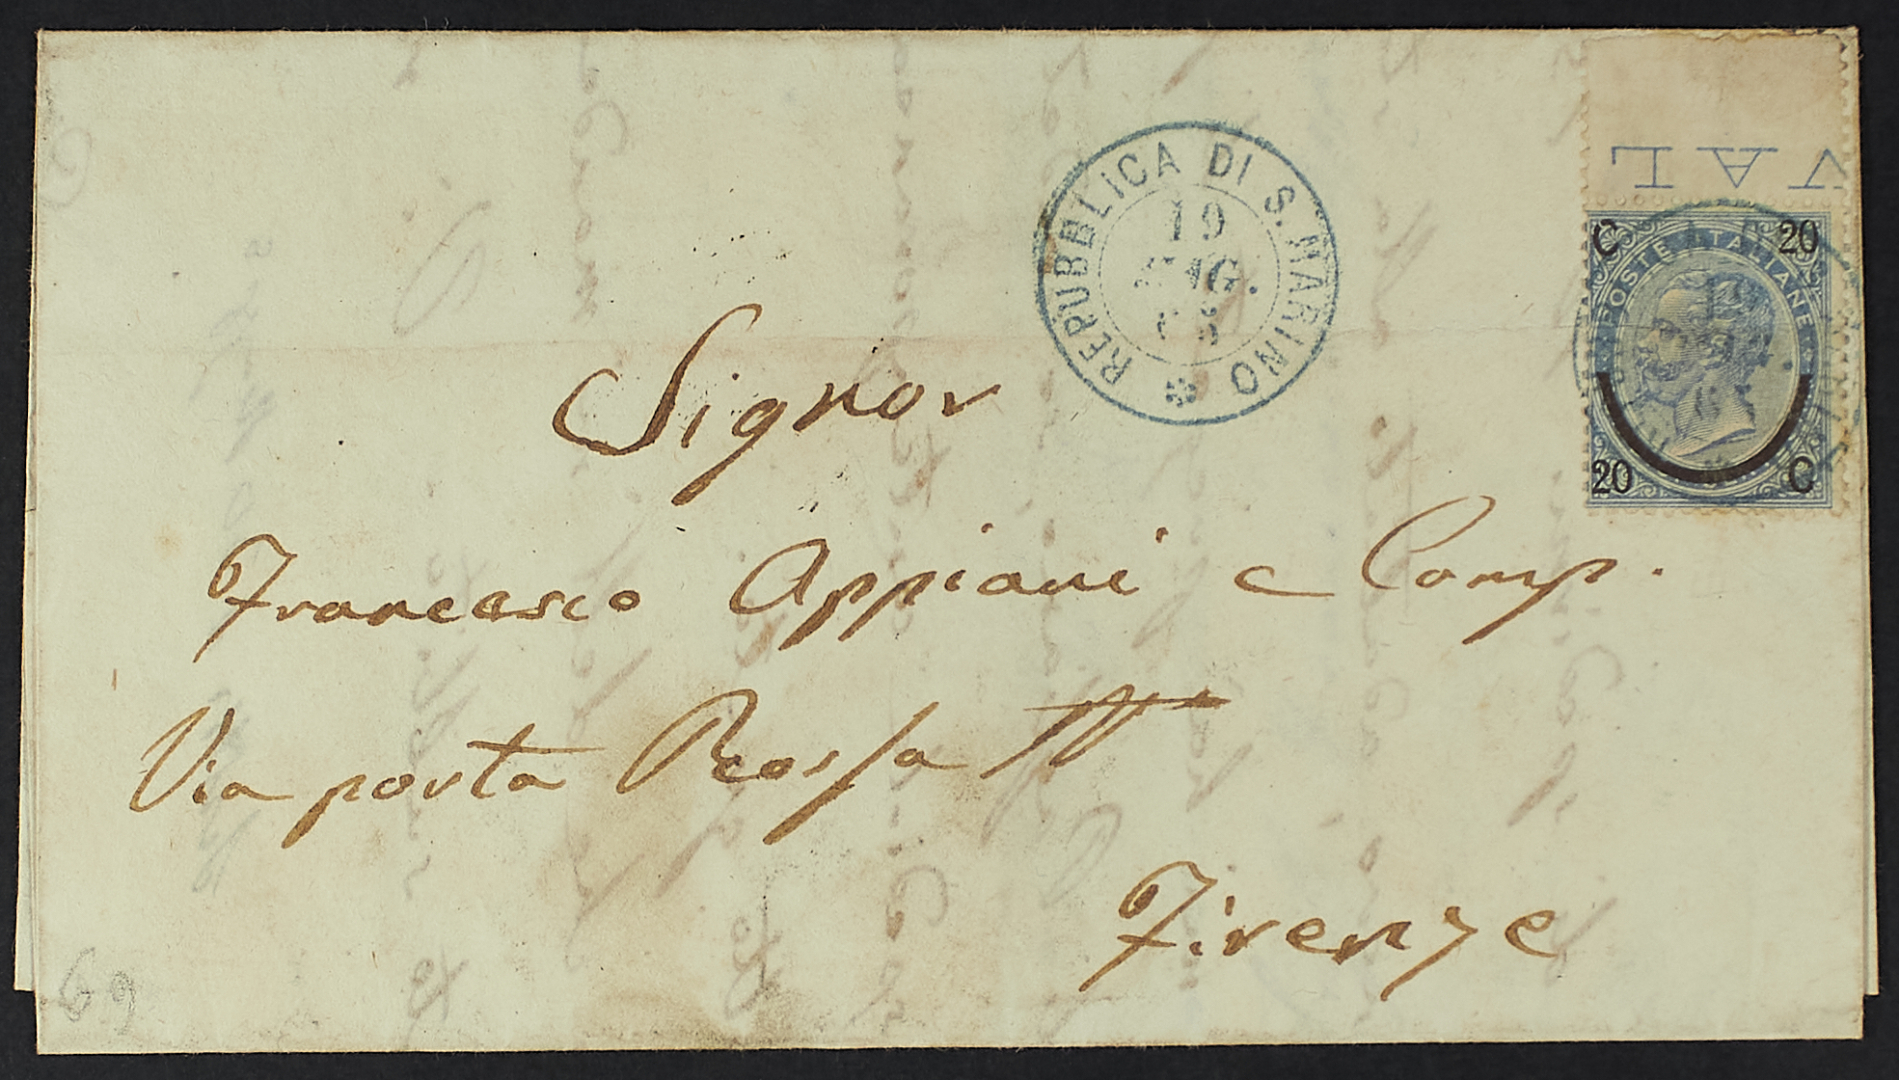 VAL
C 20
POSTE ITALIANE
20 C
REPUBBLICA DI S. MARINO
19
MAG.
Signor
Francesco Appiani e Comp.
Via porta Rossa
Firenze
69